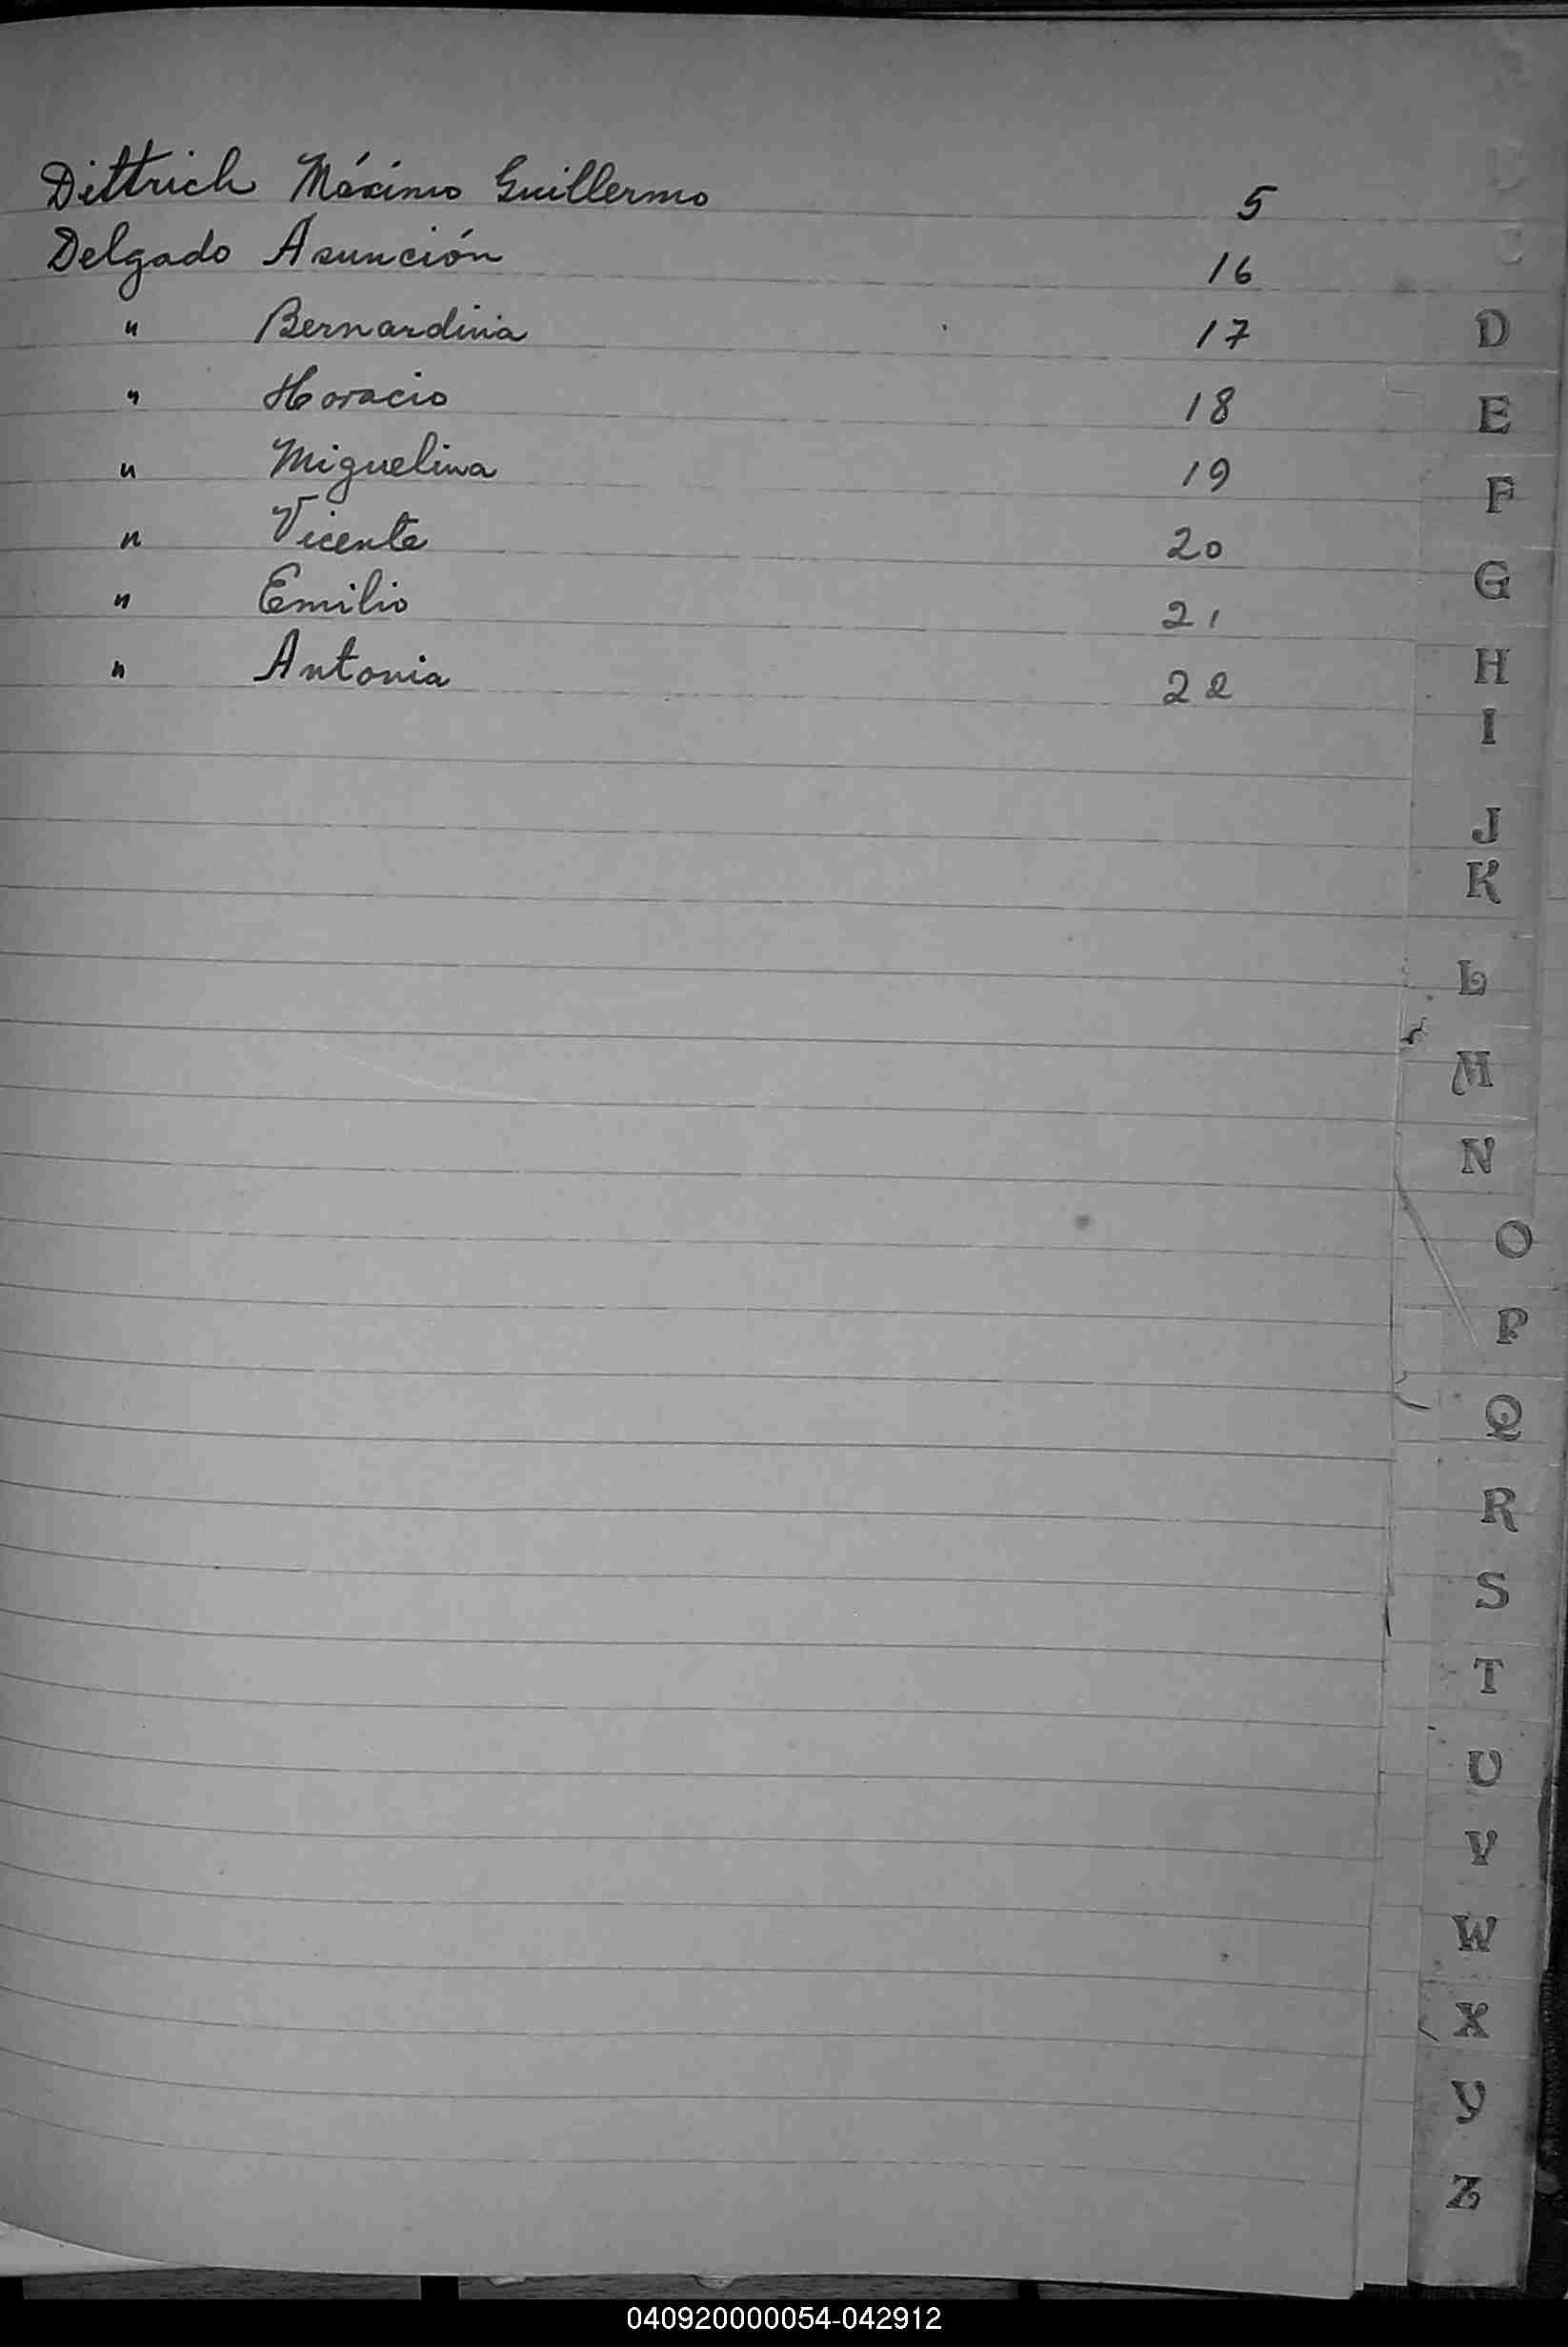 Dittrich Máximo Guillermo 5
Delgado Asunción 16
" Bernardina 17
" Horacio 18
" Miguelina 19
" Vicente 20
" Emilio 21
" Antonia 22
D
E
F
G
H
I
J
K
L
M
N
O
P
Q
R
S
T
U
V
W
X
Y
Z
040920000054-042912